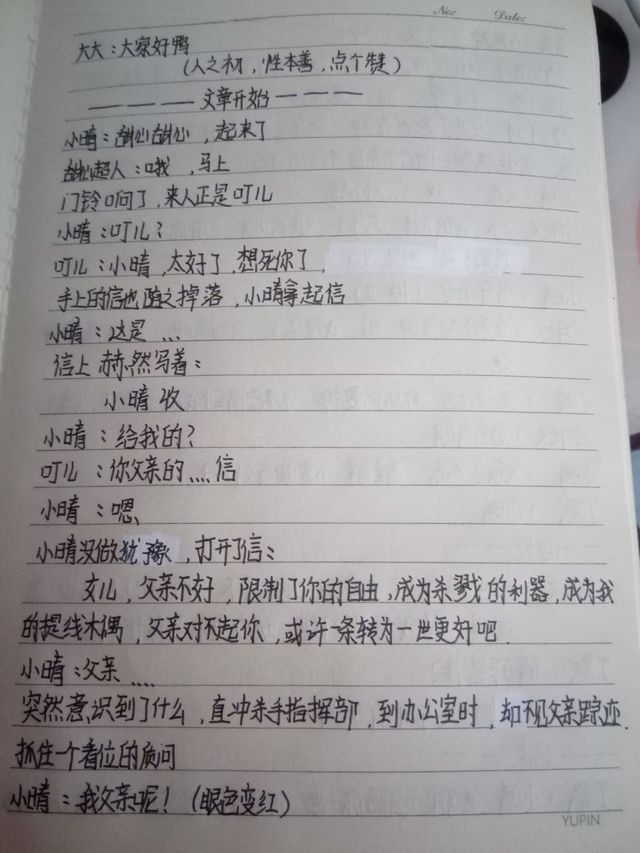 No: Date:
大大:大家好鸭
(人之初,性本善,点个赞)
————文章开始————
小晴:甜心甜心,起来了
甜心超人:哦,马上
门铃响了,来人正是叮儿
小晴:叮儿?
叮儿:小晴,太好了,想死你了,
手上的信也随之掉落,小晴拿起信
小晴:这是...
信上赫然写着:
小晴收
小晴:给我的?
叮儿:你父亲的....信
小晴:嗯、
小晴没做犹豫,打开了信:
女儿,父亲不好,限制了你的自由,成为杀戮的利器,成为我
的提线木偶,父亲对不起你,或许一条转为一世更好吧.
小晴:父亲....
突然意识到了什么,直冲杀手指挥部,到办公室时,却不见父亲踪迹.
抓住一个看位的质问
小晴:我父亲呢!(眼色变红)
YUPIN